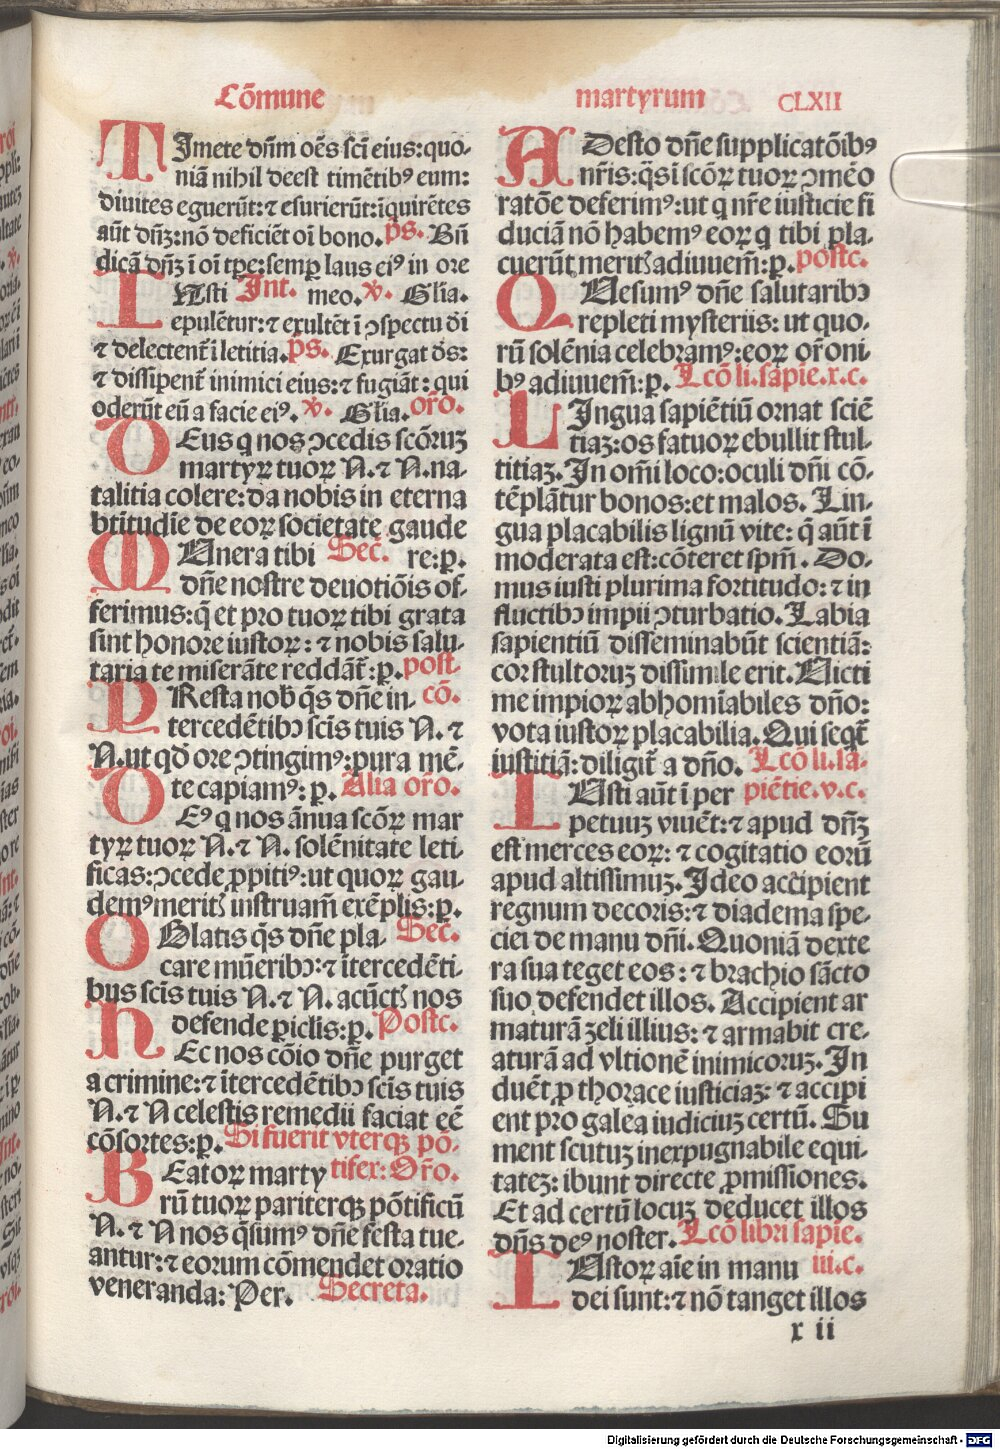 Cōmune
martyrum CLXII
TImete dn̄m oēs sc̄i eius: quo-
niā nihil deest timētibꝰ eum:
diuites eguerūt: ⁊ esurierūt: īquirētes
aūt dn̄ꝫ: nō deficiēt oī bono. p̄s. Bn̄
dicā dn̄ꝫ ī oī tp̄e: semꝑ laus eiꝰ in ore
IVsti Int. meo. v̄. Glīa.
epulētur: ⁊ exultēt ī ↄspectu dī
⁊ delectent᷑ ī letitia. p̄s. Exurgat ds̄:
⁊ dissipent᷑ inimici eius: ⁊ fugiāt: qui
oderūt eū a facie eiꝰ. v̄. Glīa. or̄o.
DEus q nos ↄcedis scōruꝫ
martyꝝ tuoꝝ N. ⁊ N. na-
talitia colere: da nobis in eterna
btītudīe de eoꝝ societate gaude
MVnera tibi Sec̄. re: p.
dn̄e nostre deuotiōis of-
ferimus: q̄ et pro tuoꝝ tibi grata
sint honore iustoꝝ: ⁊ nobis salu-
taria te miserāte reddāt᷑: p. post.
PResta nob̄ q̄s dn̄e in- cō.
tercedētibꝫ sc̄is tuis N. ⁊
N. ut qd̄ ore ↄtingimꝰ: pura mē-
te capiamꝰ: p. Alia or̄o.
DEꝰ q nos ānua scōꝝ mar
tyꝝ tuoꝝ N. ⁊ N. solēnitate leti-
ficas: ↄcede ꝓpitiꝰ: ut quoꝝ gau-
demꝰ meritꝭ instruam̄ exēplis: p.
OBlatis q̄s dn̄e pla- Sec̄.
care mūeribꝫ: ⁊ ītercedēti-
bus sc̄is tuis N. ⁊ N. acūctꝭ nos
defende ꝑiclis: p. Postc.
HEc nos cōīo dn̄e purget
a crimine: ⁊ ītercedētibꝫ sc̄is tuis
N. ⁊ N celestis remedii faciat eē
cōsortes: p. Si fuerit vterqꝫ pō-
BEatoꝝ marty tifex: Or̄o.
rū tuoꝝ pariterqꝫ pōtificū
N. ⁊ N nos q̄sumꝰ dn̄e festa tue-
antur: ⁊ eorum cōmendet oratio
veneranda: Per. Secreta.
ADesto dn̄e supplicatōibꝰ
nr̄is: q̄s ī scōꝝ tuoꝝ ↄmēo
ratōe deferimꝰ: ut q nr̄e iusticie fi
duciā nō habemꝰ eoꝝ q tibi pla-
cuerūt meritꝭ adiuuem̄: p. postc.
QVesumꝰ dn̄e salutaribꝫ
repleti mysteriis: ut quo-
rū solēnia celebramꝰ: eoꝝ or̄oni-
bꝰ adiuuem̄: p. Lcō li. sapīe. x. c.
LIngua sapiētiū ornat sciē
tiaꝫ: os fatuoꝝ ebullit stul-
titiaꝫ. In om̄i loco: oculi dn̄i cō-
tēplātur bonos: et malos. Lin-
gua placabilis lignū vite: q̄ aūt ī
moderata est: cōteret spm̄. Do-
mus iusti plurima fortitudo: ⁊ in
fluctibꝫ impii ↄturbatio. Labia
sapientiū disseminabūt scientiā:
cor stultoruꝫ dissimile erit. Victi
me impioꝝ abhomīabiles dn̄o:
vota iustoꝝ placabilia. Qui seqt᷑
iustitiā: diligit᷑ a dn̄o. Lcō li. sa-
IVsti aūt ī per piētie. v. c.
petuuꝫ viuēt: ⁊ apud dn̄ꝫ
est merces eoꝝ: ⁊ cogitatio eorū
apud altissimuꝫ. Ideo accipient
regnum decoris: ⁊ diadema spe-
ciei de manu dn̄i. Quoniā dexte
ra sua teget eos: ⁊ brachio sācto
suo defendet illos. Accipient ar
maturā zeli illius: ⁊ armabit cre-
aturā ad vltionē inimicoruꝫ. In
duēt ꝓ thorace iusticiaꝫ: ⁊ accipi
ent pro galea iudiciuꝫ certū. Su
ment scutuꝫ inexpugnabile equi-
tateꝫ: ibunt directe ꝓmissiones.
Et ad certū locuꝫ deducet illos
dn̄s deꝰ noster. Lcō libri sapīe.
IVstoꝝ aīe in manu iii. c.
dei sunt: ⁊ nō tanget illos
x ii
Digitalisierung gefördert durch die Deutsche Forschungsgemeinschaft - DFG